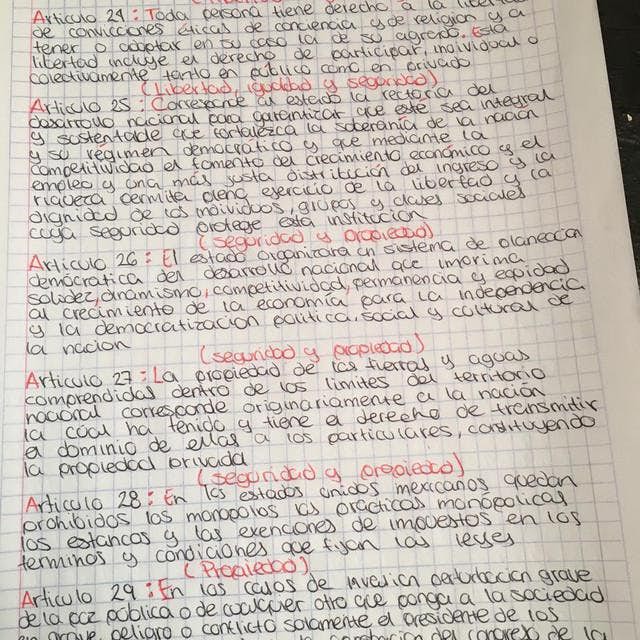 Articulo 24 : Toda persona tiene derecho a la libertad
de convicciones éticas de conciencia y de religion y a
tener o adoptar en su caso la de su agrado. Esta
libertad incluye el derecho de participar, individual o
colectivamente tanto en público como en privado
(Libertad, igualdad y seguridad)
Articulo 25 : Corresponde al estado la rectoria del
desarrollo nacional para garantizar que este sea integral
y sustentable que fortalezca la soberanía de la nacion
y su régimen democratico y que mediante la
competitividad el fomento del crecimiento económico y el
empleo y una más justa distribución del ingreso y la
riqueza permita pleno ejercicio de la libertad y la
dignidad de los individuos, grupos y clases sociales
cuya seguridad protege esta institucion
(seguridad y propiedad)
Articulo 26 : El estado organizara un sistema de planeación
democratica del desarrollo nacional que imprima
solidez, dinamismo, competitividad, permanencia y equidad
al crecimiento de la economía para la independencia
y la democratización politica, social y cultural de
la nacion
(seguridad y propiedad)
Articulo 27 : La propiedad de las tierras y aguas
comprendidas dentro de los limites del territorio
nacional corresponde originariamente a la nación
la cual ha tenido y tiene el derecho de transmitir
el dominio de ellas a los particulares, constituyendo
la propiedad privada
(seguridad y propiedad)
Articulo 28 : En los estados unidos mexicanos quedan
prohibidos los monopolios las prácticas monópolicas
los estancos y las exenciones de impuestos en los
terminos y condiciones que fijan las leyes
(Propiedad)
Articulo 29 : En los casos de invasion perturbación grave
de la paz pública o de cualquier otro que ponga a la sociedad
en grave peligro o conflicto solamente el presidente de los